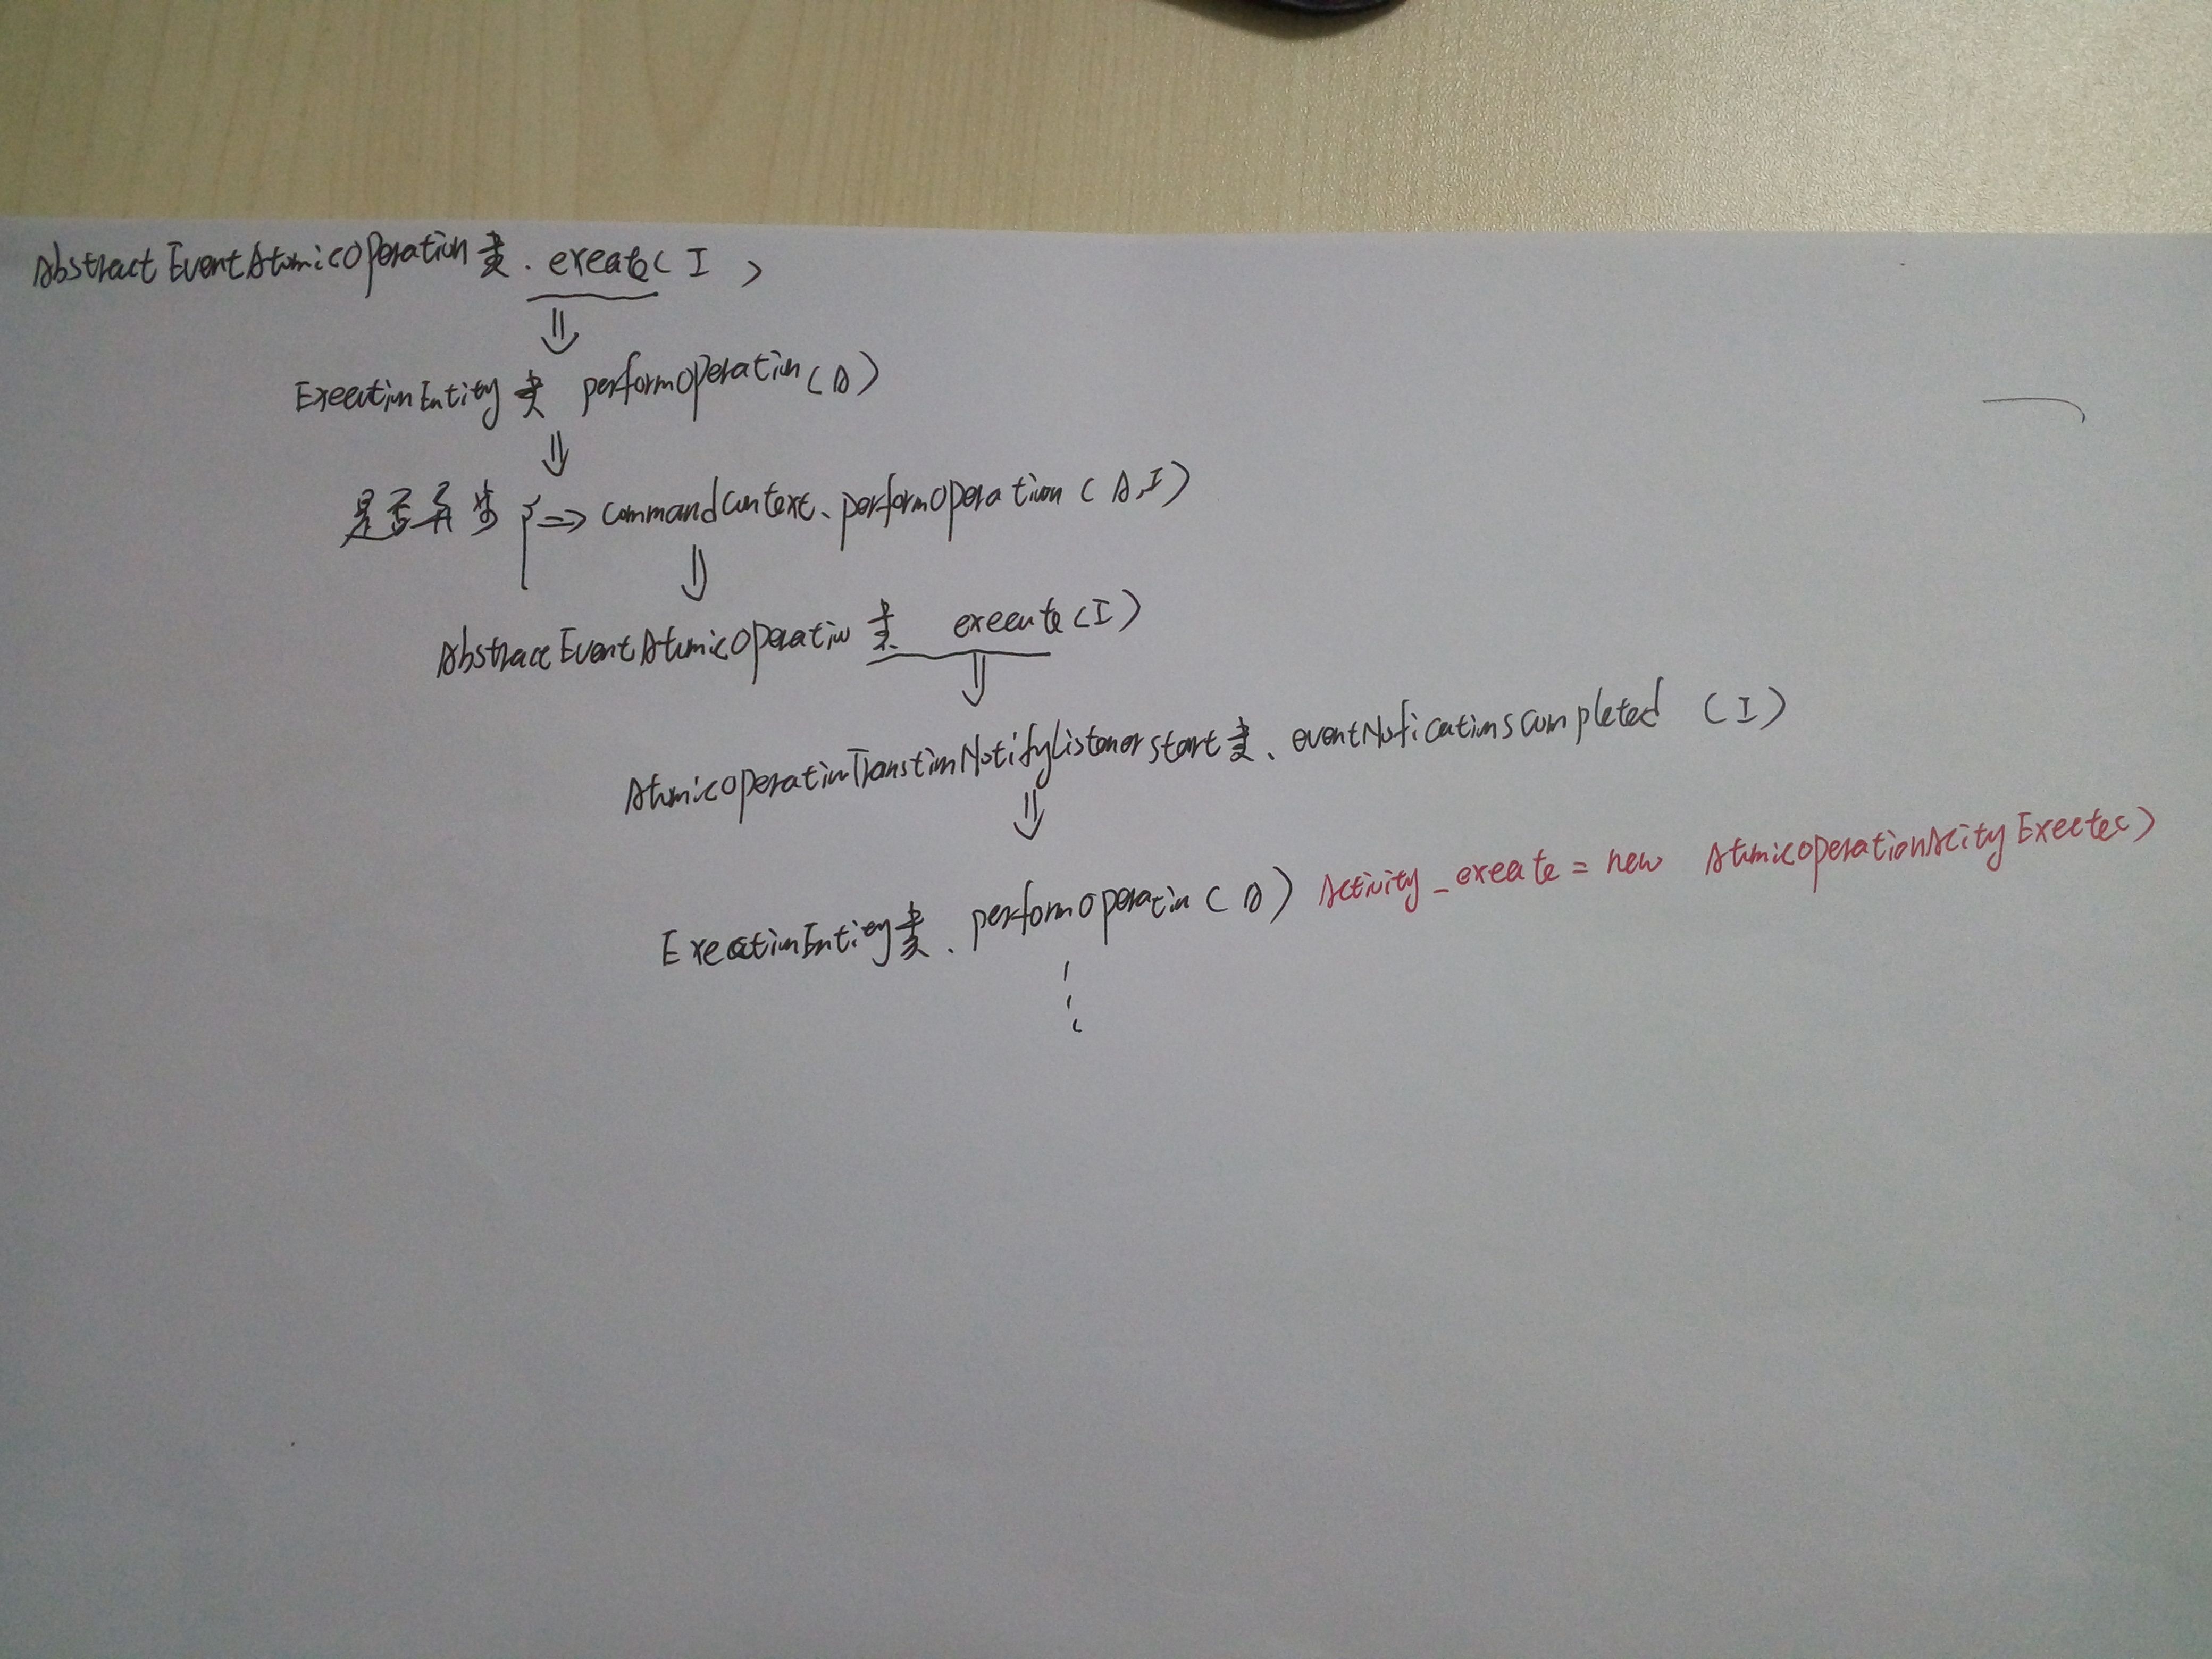 AbstractEventAtomicOperation类.execute(I)
⇓
ExecutionEntity类 performOperation(A)
⇓
是否异步 { ⇒ commandContext.performOperation(A,I)
⇓
AbstractEventAtomicOperation类 execute(I)
⇓
AtomicOperationTranstionNotifyListenerstart类.eventNotificationsCompleted (I)
⇓
ExecutionEntity类.performOperation(A) Activity_execute = new AtomicOperationAcityExecte()
⋮